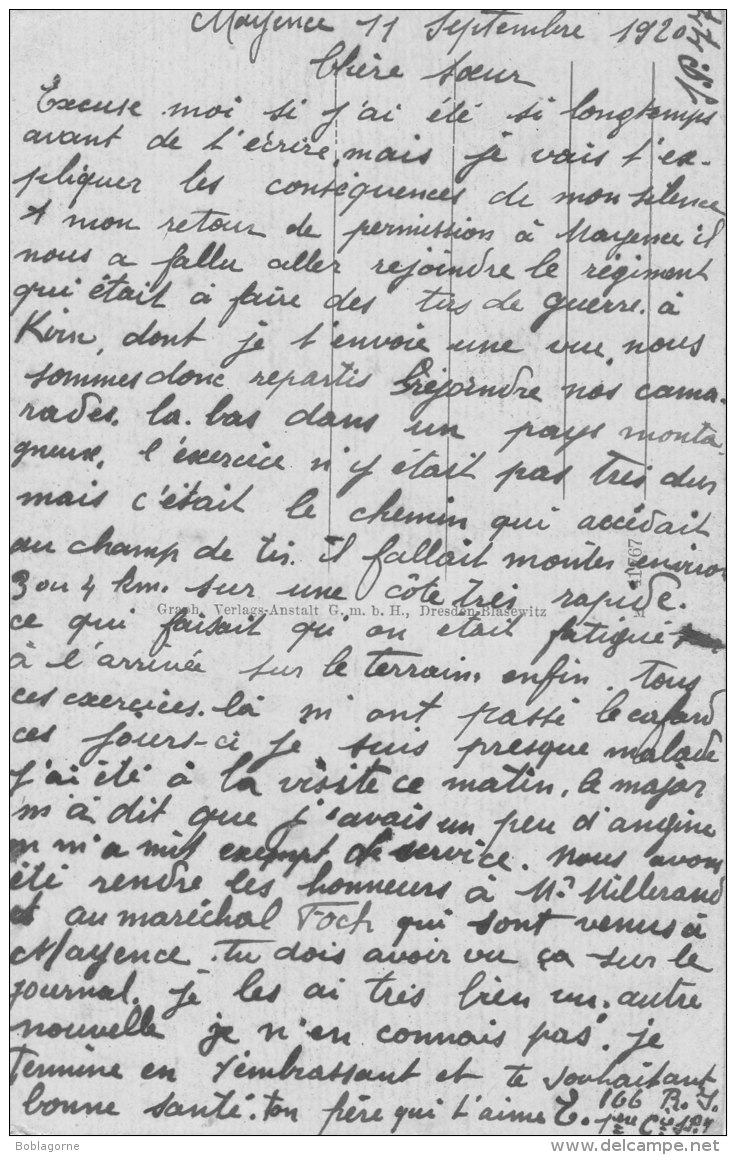 Mayence 11 Septembre 1920
S.P. 77
Chère sœur
Excuse moi si j'ai été si longtemps
avant de t'écrire, mais je vais t'ex-
pliquer les conséquences de mon silence
A mon retour de permission à Mayence il
nous a fallu aller rejoindre le régiment
qui était à faire des tirs de guerre. à
Kirn, dont je t'envoie une vue, nous
sommes donc repartis rejoindre nos cama-
rades. la-bas dans un pays monta-
gneux. l'exercice n'y était pas très dur
mais c'était le chemin qui accédait
au champ de tir. il fallait monter environ
3 ou 4 km. sur une côte très rapide.
Graph. Verlags-Anstalt G. m. b. H., Dresden-Blasewitz
M
ce qui faisait qu'on était fatigué
à l'arrivée sur le terrain. enfin. tous
ces exercices. là m'ont passé le cafard
ces jours-ci je suis presque malade
j'ai été à la visite ce matin. le major
m'a dit que j'avais un peu d'angine
on m'a mis exempt de service. nous avons
été rendre les honneurs à Mr Millerand
et au maréchal Foch qui sont venus à
Mayence. tu dois avoir vu ça sur le
journal. je les ai très bien vu. autre
nouvelle je n'en connais pas. je
termine en t'embrassant et te souhaitant
bonne santé. ton frère qui t'aime E. 166 R. I.
1ère Cie S.P. 77
Boblagorne
delcampe.net